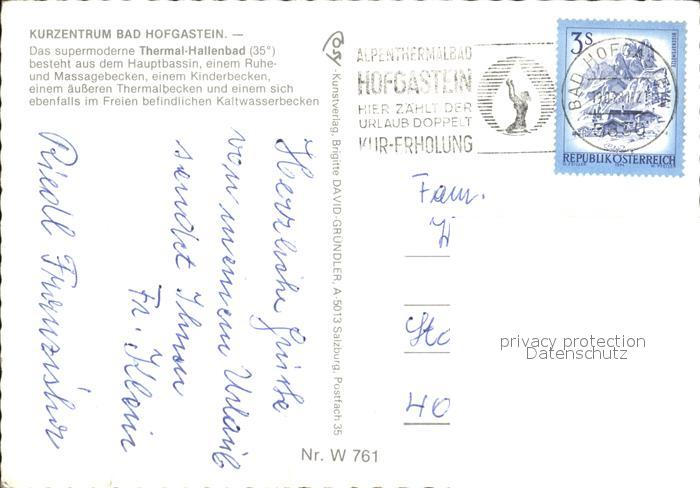 KURZENTRUM BAD HOFGASTEIN. —
Das supermoderne Thermal-Hallenbad (35°)
besteht aus dem Hauptbassin, einem Ruhe-
und Massagebecken, einem Kinderbecken,
einem äußeren Thermalbecken und einem sich
ebenfalls im Freien befindlichen Kaltwasserbecken
Cosy-Kunstverlag, Brigitte DAVID-GRÜNDLER, A-5013 Salzburg, Postfach 35
ALPENTHERMALBAD
HOFGASTEIN
HIER ZÄHLT DER
URLAUB DOPPELT
KUR-ERHOLUNG
BAD HOFGAS
3S
REPUBLIK ÖSTERREICH
Herrliche Grüße
von meinem Urlaub
sendet Ihnen
Fr. Klein
Riedl Franziska
Fam.
40
privacy protection
Datenschutz
Nr. W 761